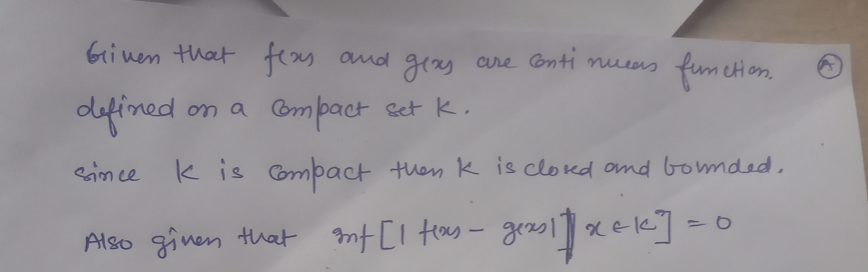 Given that f(x) and g(x) are continuous function. A
defined on a compact set K.
since K is compact then K is closed and bounded.
Also given that inf[|f(x) - g(x)| | x ∈ K] = 0